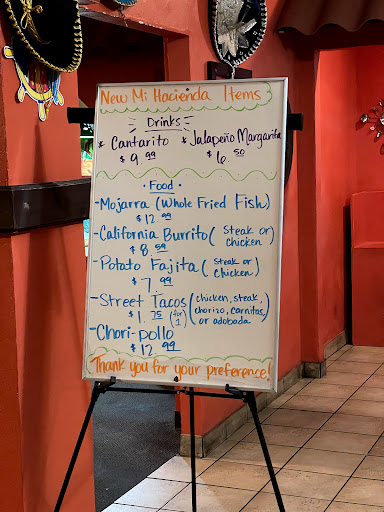 New Mi Hacienda Items
Drinks
* Cantarito * Jalapeño Margarita
$9.99 $6.50
· Food ·
-Mojarra (Whole Fried Fish)
$12.99
-California Burrito (steak or
chicken)
$8.59
-Potato Fajita (steak or
chicken)
$7.99
-Street Tacos (chicken, steak,
chorizo, carnitas,
or adobada)
$1.75 (for 1)
-Chori-pollo
$12.99
Thank you for your preference!